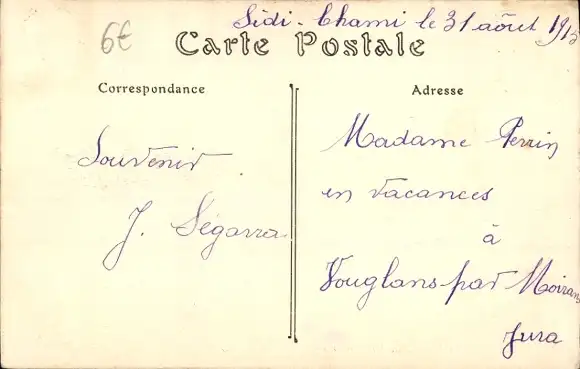 6€
Sidi-Chami le 31 août 1915
Carte Postale
Correspondance
Adresse
Souvenir
J. Ségarra
Madame Perrin
en vacances
à
Vouglans par Moirans
Jura